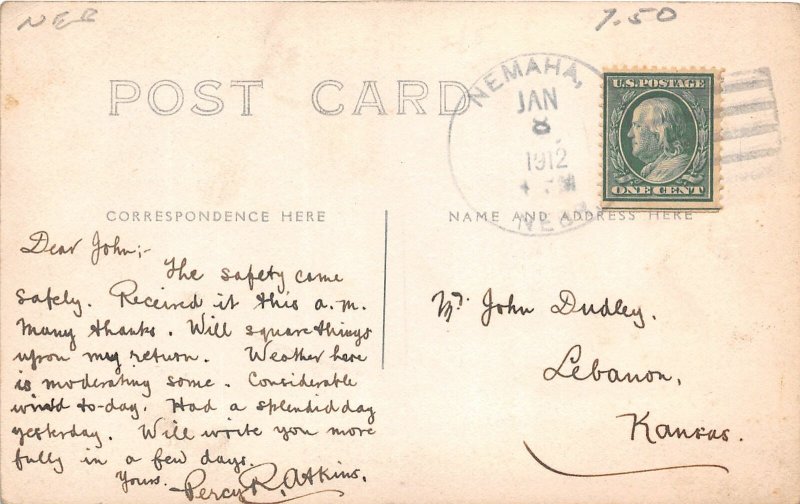 NEB
7.50
POST CARD
NEMAHA,
JAN
8
1912
NEBR.
U.S. POSTAGE
ONE CENT
CORRESPONDENCE HERE
NAME AND ADDRESS HERE
Dear John;-
The safety came
safely. Received it this a.m.
Many thanks. Will square things
upon my return. Weather here
is moderating some. Considerable
wind to-day. Had a splendid day
yesterday. Will write you more
fully in a few days.
Yours.
Percy R. Atkins.
Mr. John Dudley.
Lebanon,
Kansas.